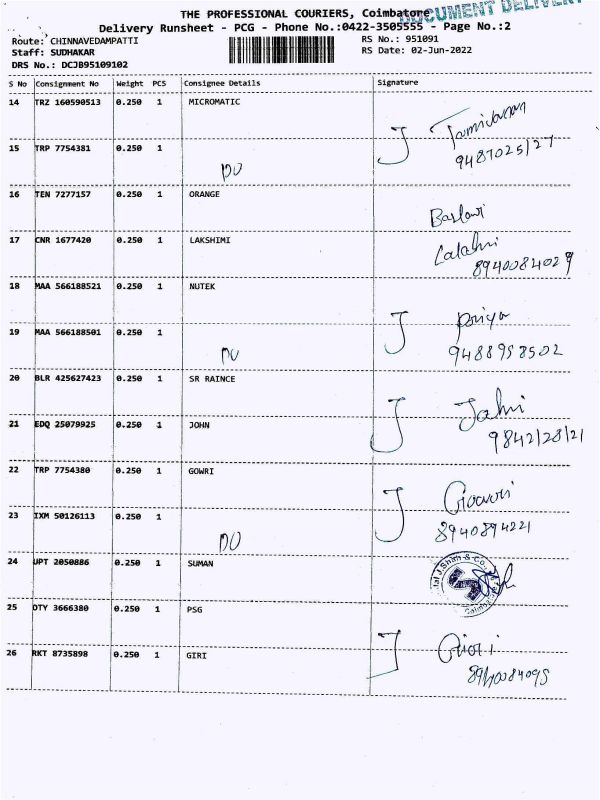 THE PROFESSIONAL COURIERS, Coimbatore
DOCUMENT DELIVERY
Delivery Runsheet - PCG - Phone No.:0422-3505555 - Page No.:2
Route: CHINNAVEDAMPATTI RS No.: 951091
Staff: SUDHAKAR RS Date: 02-Jun-2022
DRS No.: DCJB95109102
S No Consignment No Weight PCS Consignee Details Signature
14 TRZ 160590513 0.250 1 MICROMATIC
15 TRP 7754381 0.250 1
DO
16 TEN 7277157 0.250 1 ORANGE
17 CNR 1677420 0.250 1 LAKSHIMI
8940084029
18 MAA 566188521 0.250 1 NUTEK
Priya
19 MAA 566188501 0.250 1
DO 9488958502
20 BLR 425627423 0.250 1 SR RAINCE
21 EDQ 25079925 0.250 1 JOHN
9842128121
22 TRP 7754380 0.250 1 GOWRI
Gowri
23 IXM 50126113 0.250 1 8940894221
DO
24 UPT 2050886 0.250 1 SUMAN
25 DTY 3666380 0.250 1 PSG
26 RKT 8735898 0.250 1 GIRI
Giri